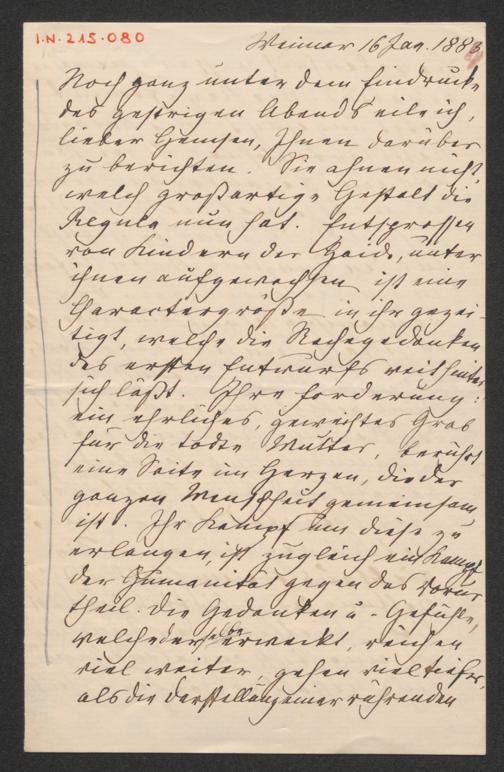 I.N. 215.080
Weimar 16 Jan. 1883
Noch ganz unter dem Eindrucke
des gestrigen Abends eile ich,
lieber Hemsen, Ihnen darüber
zu berichten. Sie ahnen nicht,
welch großartige Gestalt die
Regula nun hat. Entsprossen
von Kindern der Haide, unter
ihnen aufgewachsen ist eine
Charactergröße in ihr gezei-
tigt, welche die Rachegedanken
des ersten Entwurfs weit hinter
sich läßt. Ihre Forderung:
ein ehrliches, geweihtes Grab
für die todte Mutter, berührt
eine Saite im Herzen, die der
ganzen Menschheit gemeinsam
ist. Ihr Kampf um dieß zu
erlangen, ist zugleich ein Kampf
der Humanität gegen das Vorur-
theil. Die Gedanken u. Gefühle,
welche derselbe erweckt, reichen
viel weiter, gehen viel tiefer,
als die Darstellung einer rührenden